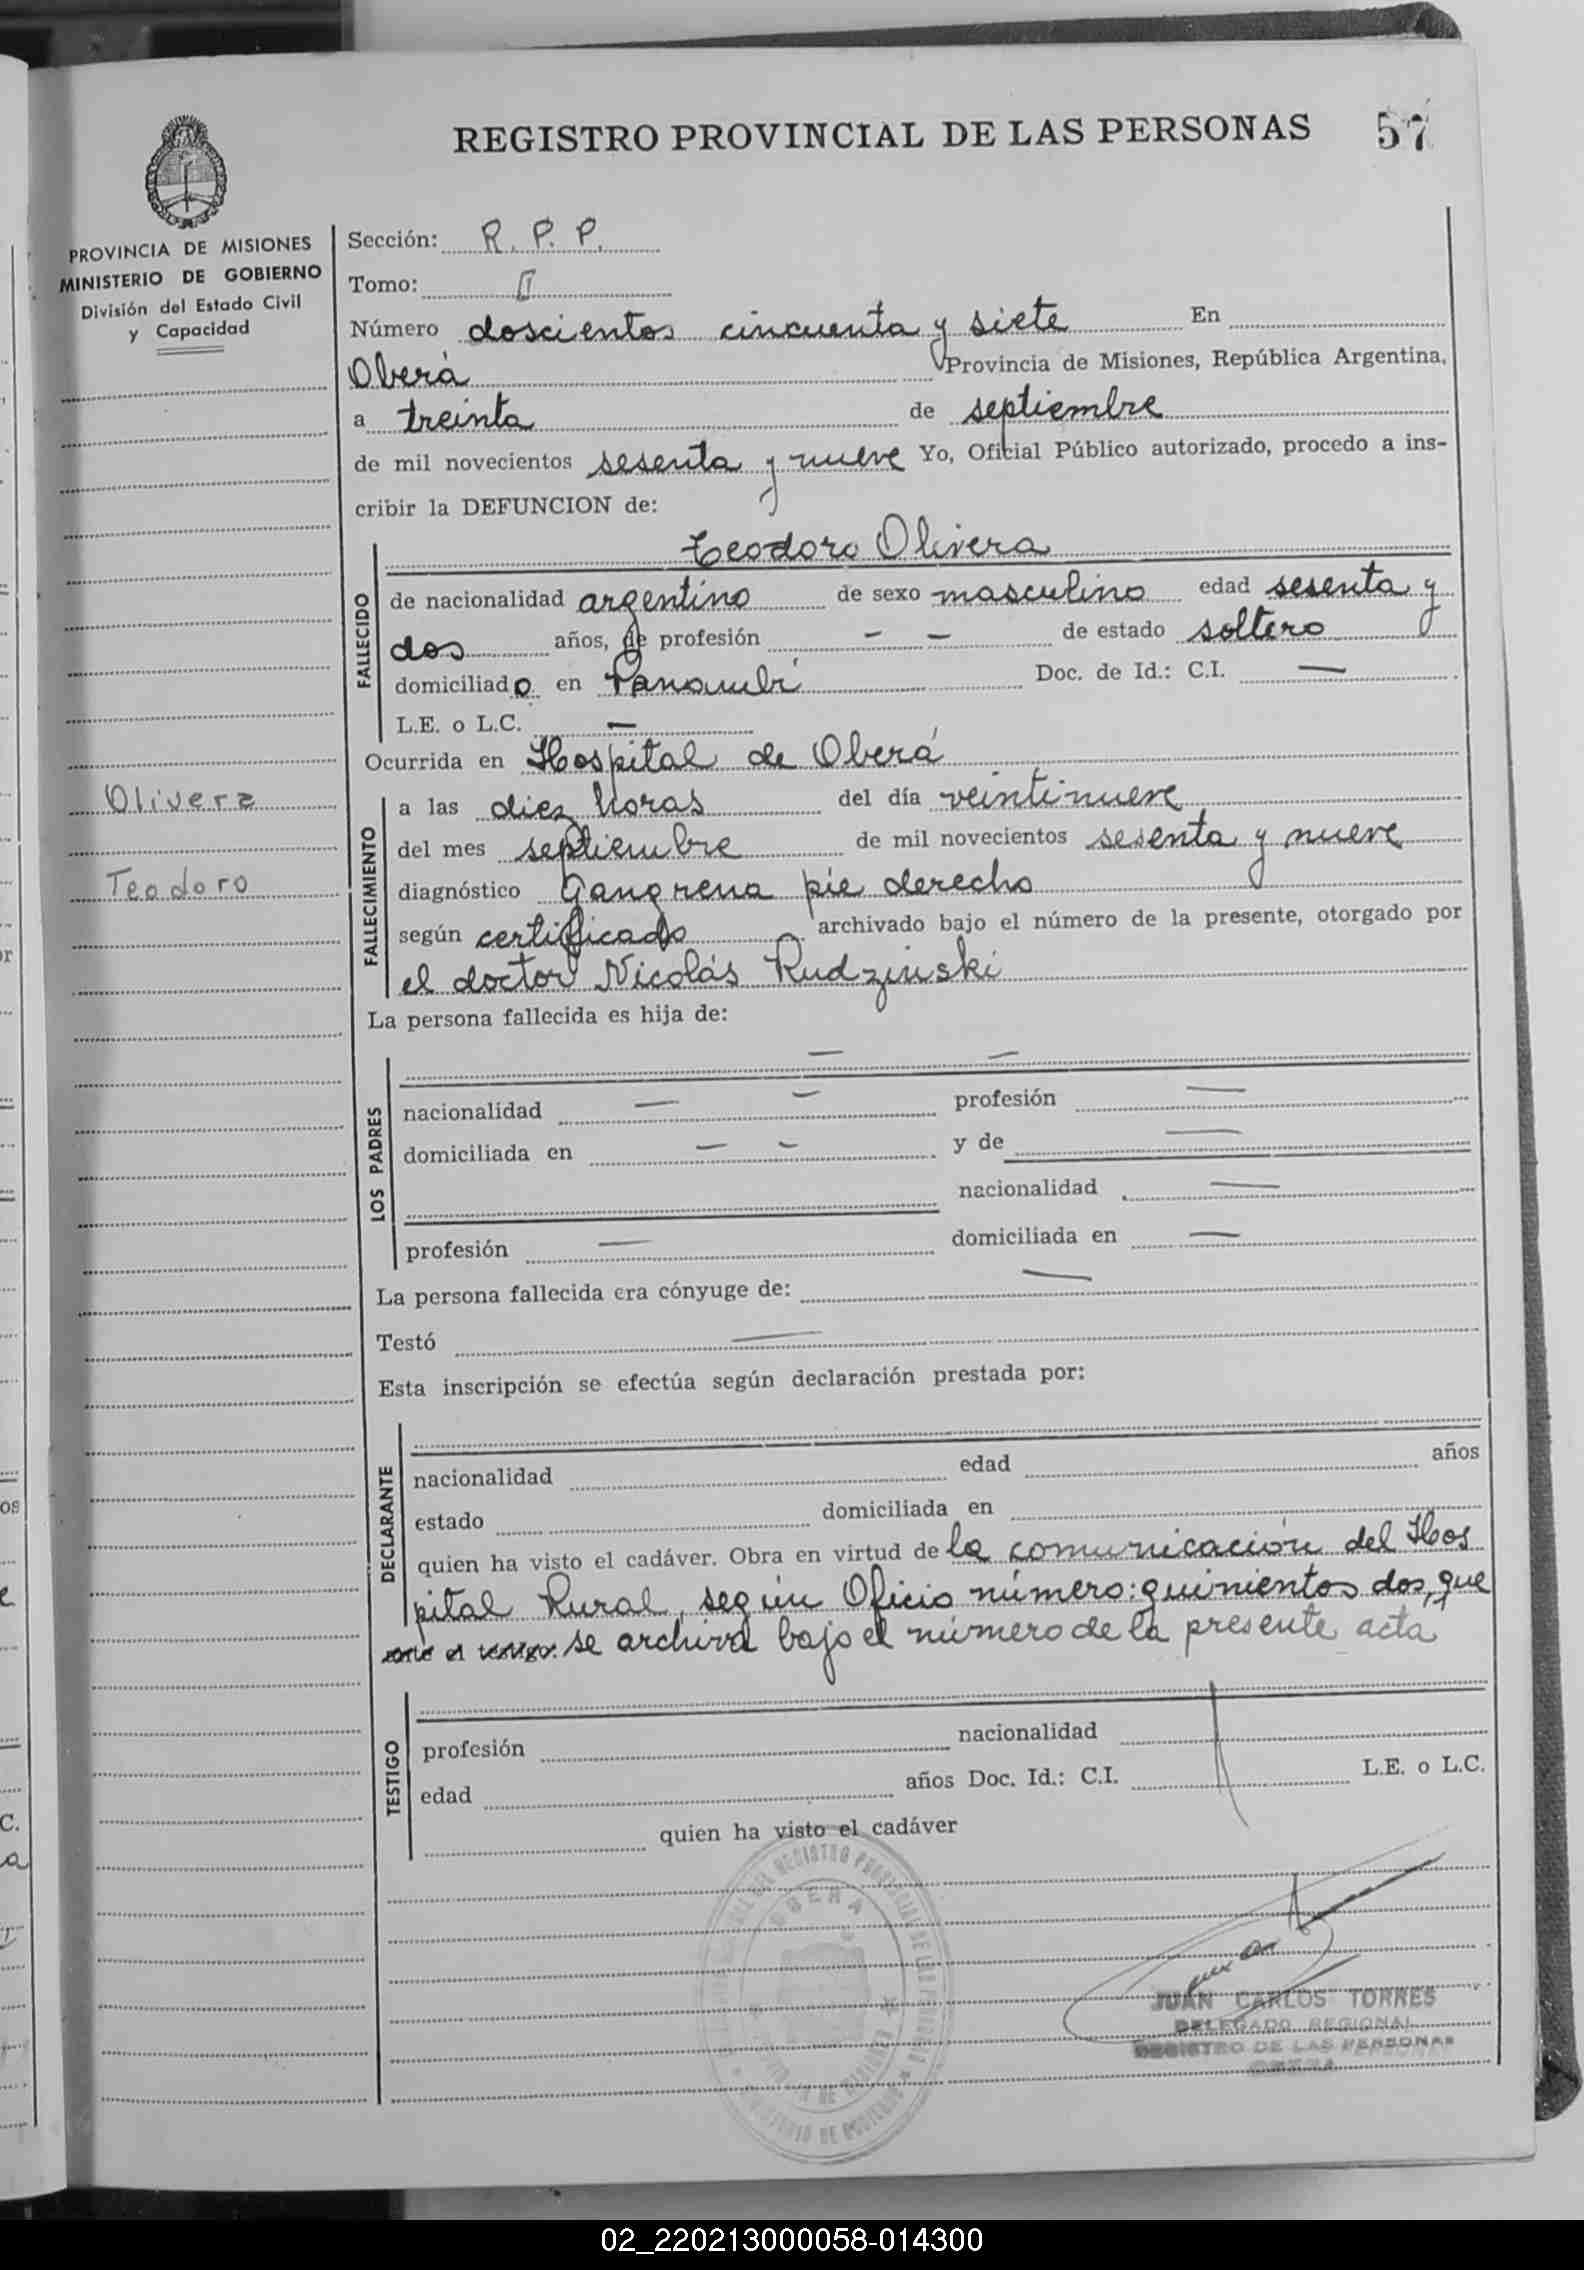 REGISTRO PROVINCIAL DE LAS PERSONAS 57
PROVINCIA DE MISIONES
MINISTERIO DE GOBIERNO
División del Estado Civil
y Capacidad
Olivera
Teodoro
Sección: R. P. P.
Tomo: II
Número doscientos cincuenta y siete En
Oberá Provincia de Misiones, República Argentina,
a treinta de septiembre
de mil novecientos sesenta y nueve Yo, Oficial Público autorizado, procedo a ins-
cribir la DEFUNCION de:
Teodoro Olivera
FALLECIDO
de nacionalidad argentino de sexo masculino edad sesenta y
dos años, de profesión — — de estado soltero
domiciliado en Panambí Doc. de Id.: C.I. —
L.E. o L.C. —
Ocurrida en Hospital de Oberá
FALLECIMIENTO
a las diez horas del día veintinueve
del mes septiembre de mil novecientos sesenta y nueve
diagnóstico Gangrena pie derecho
según certificado archivado bajo el número de la presente, otorgado por
el doctor Nicolás Rudzinski
La persona fallecida es hija de:
LOS PADRES
— —
nacionalidad — — profesión —
domiciliada en — — y de —
nacionalidad —
profesión — domiciliada en —
La persona fallecida era cónyuge de: —
Testó —
Esta inscripción se efectúa según declaración prestada por:
DECLARANTE
nacionalidad edad años
estado domiciliada en
quien ha visto el cadáver. Obra en virtud de la comunicación del Hos
pital Rural, según Oficio número: quinientos dos, que
se archiva bajo el número de la presente acta
TESTIGO
profesión nacionalidad
edad años Doc. Id.: C.I. L.E. o L.C.
quien ha visto el cadáver
OBERA
JUAN CARLOS TORRES
DELEGADO REGIONAL
REGISTRO DE LAS PERSONAS
OBERA
02_220213000058-014300